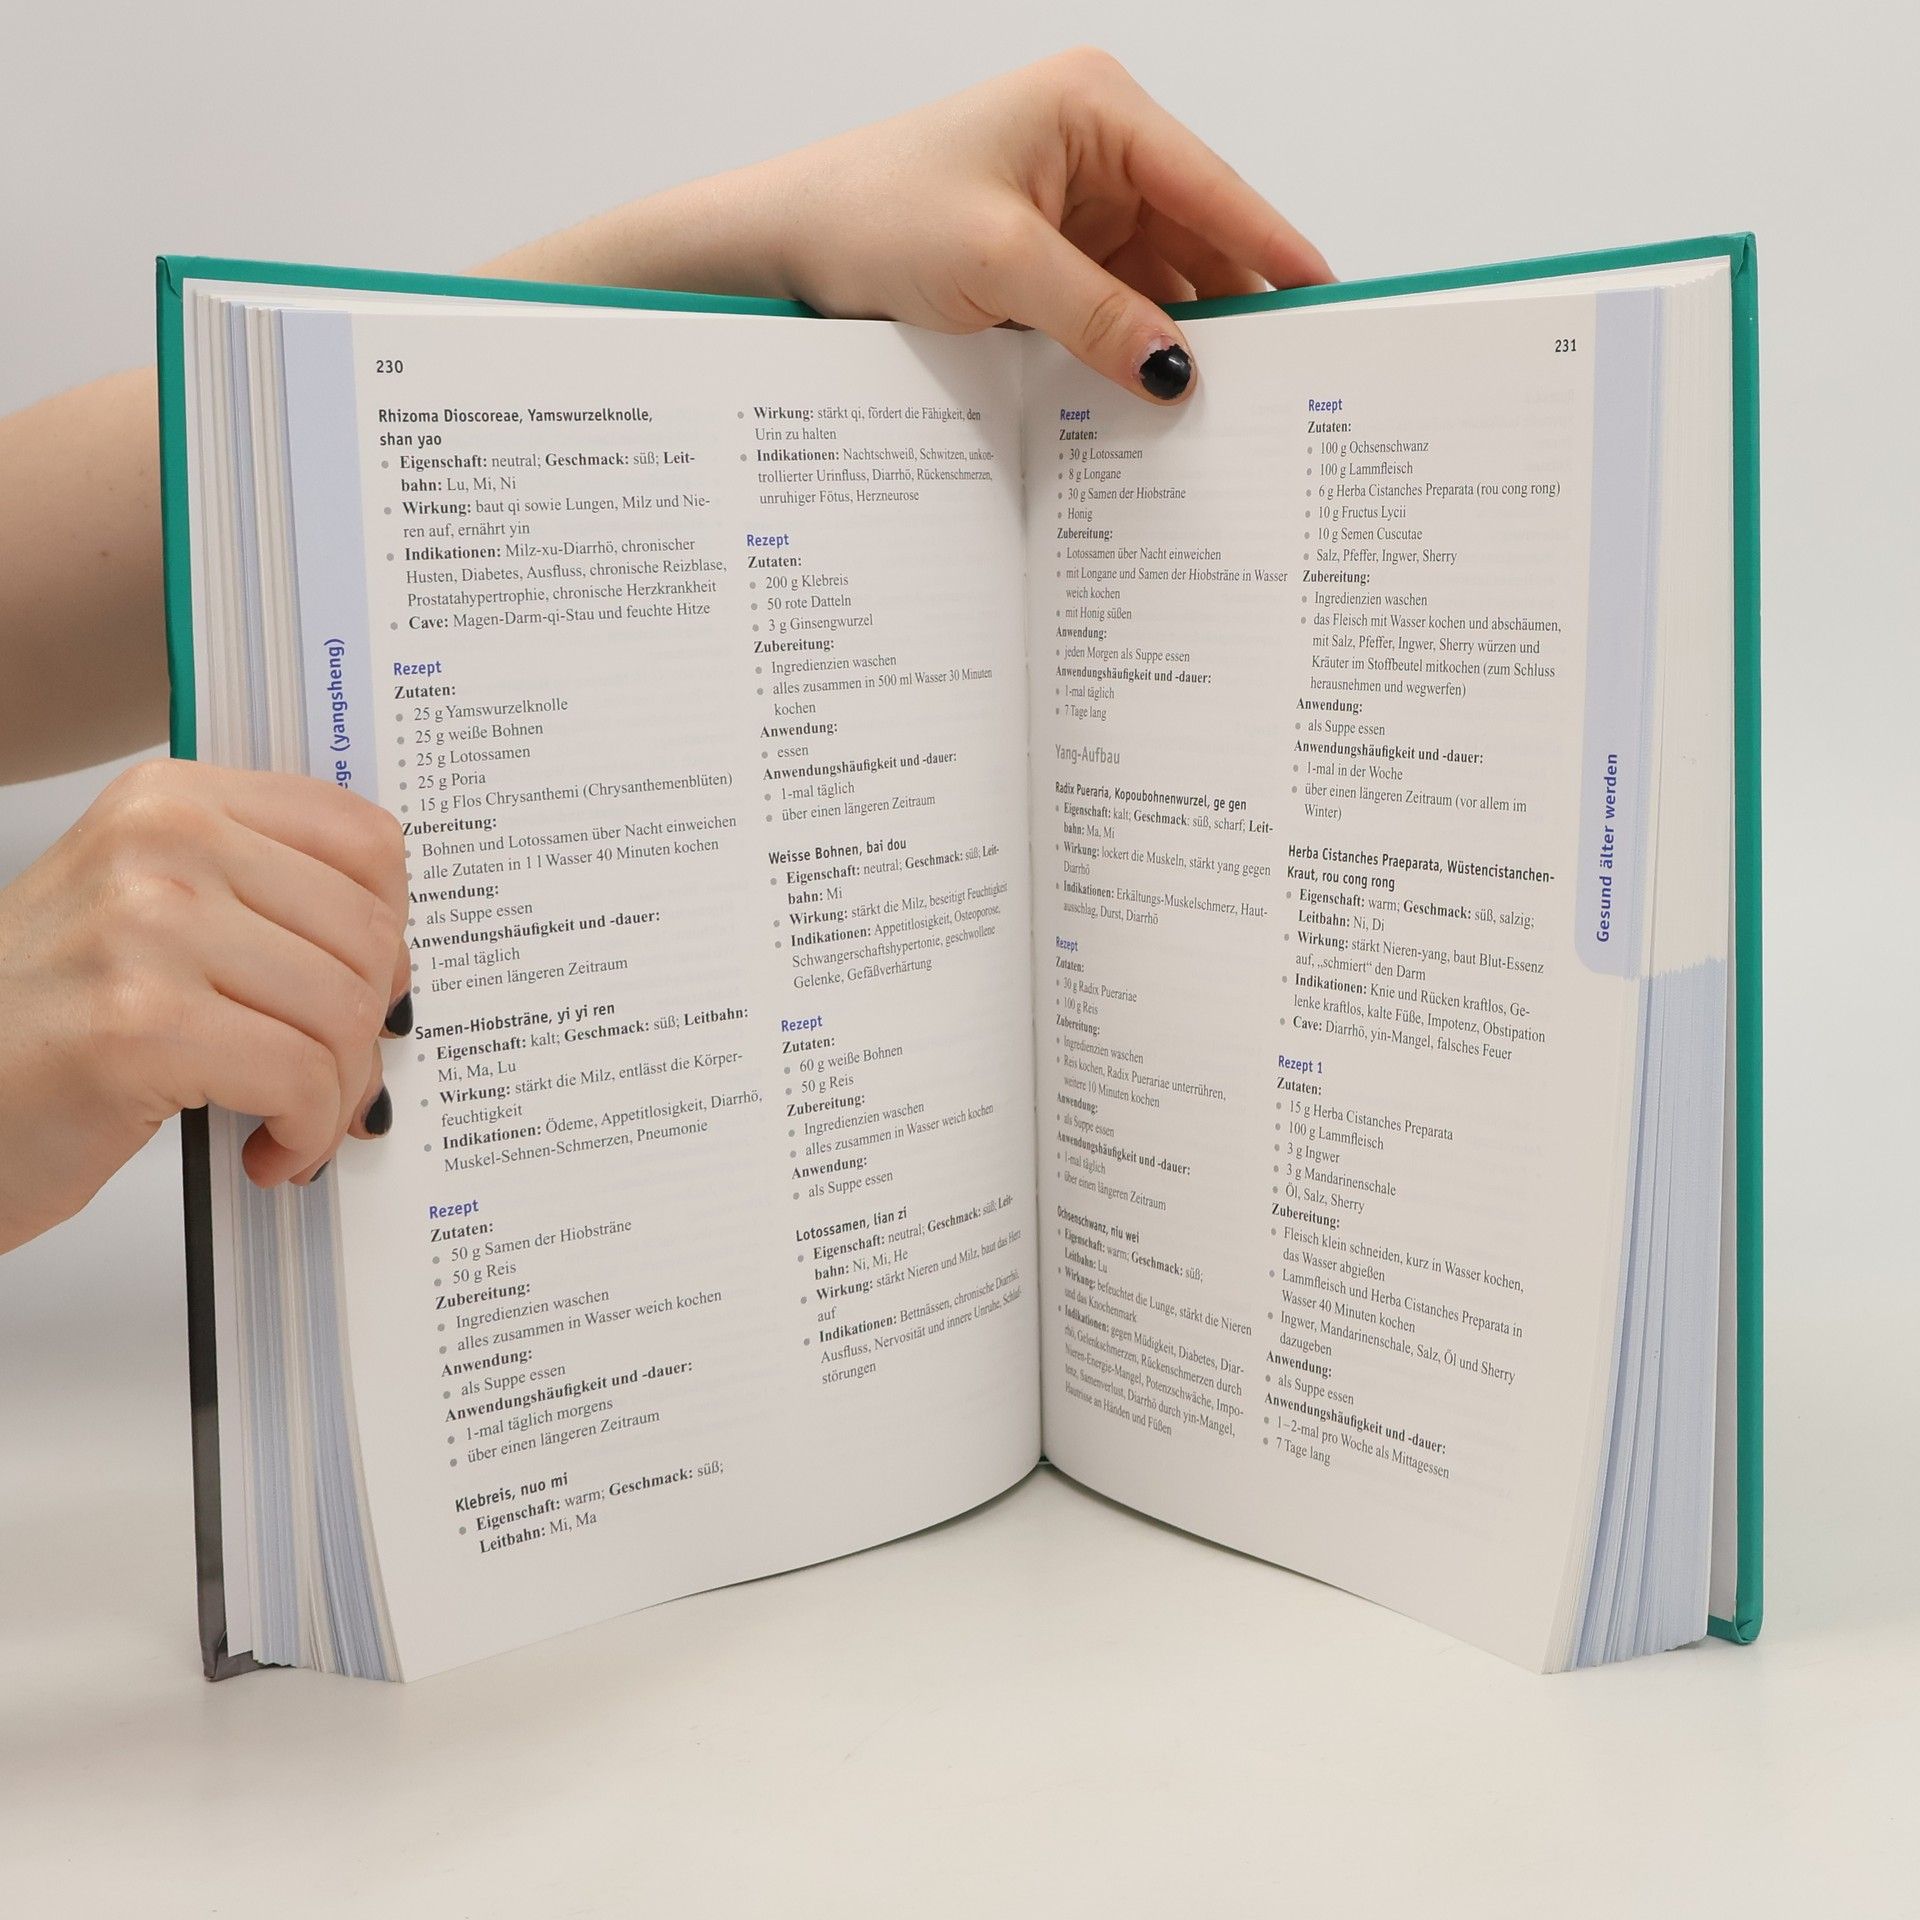 230
ege (yangsheng)
Rhizoma Dioscoreae, Yamswurzelknolle,
shan yao
Eigenschaft: neutral; Geschmack: süß; Leit-
bahn: Lu, Mi, Ni
Wirkung: baut qi sowie Lungen, Milz und Nie-
ren auf, ernährt yin
Indikationen: Milz-xu-Diarrhö, chronischer
Husten, Diabetes, Ausfluss, chronische Reizblase,
Prostatahypertrophie, chronische Herzkrankheit
Cave: Magen-Darm-qi-Stau und feuchte Hitze
Rezept
Zutaten:
25 g Yamswurzelknolle
25 g weiße Bohnen
25 g Lotossamen
25 g Poria
15 g Flos Chrysanthemi (Chrysanthemenblüten)
Zubereitung:
Bohnen und Lotossamen über Nacht einweichen
alle Zutaten in 1 l Wasser 40 Minuten kochen
Anwendung:
als Suppe essen
Anwendungshäufigkeit und -dauer:
1-mal täglich
über einen längeren Zeitraum
Samen-Hiobsträne, yi yi ren
Eigenschaft: kalt; Geschmack: süß; Leitbahn:
Mi, Ma, Lu
Wirkung: stärkt die Milz, entlässt die Körper-
feuchtigkeit
Indikationen: Ödeme, Appetitlosigkeit, Diarrhö,
Muskel-Sehnen-Schmerzen, Pneumonie
Rezept
Zutaten:
50 g Samen der Hiobsträne
50 g Reis
Zubereitung:
Ingredienzien waschen
alles zusammen in Wasser weich kochen
Anwendung:
als Suppe essen
Anwendungshäufigkeit und -dauer:
1-mal täglich morgens
über einen längeren Zeitraum
Klebreis, nuo mi
Eigenschaft: warm; Geschmack: süß;
Leitbahn: Mi, Ma
Wirkung: stärkt qi, fördert die Fähigkeit, den
Urin zu halten
Indikationen: Nachtschweiß, Schwitzen, unkon-
trollierter Urinfluss, Diarrhö, Rückenschmerzen,
unruhiger Fötus, Herzneurose
Rezept
Zutaten:
200 g Klebreis
50 rote Datteln
3 g Ginsengwurzel
Zubereitung:
Ingredienzien waschen
alles zusammen in 500 ml Wasser 30 Minuten
kochen
Anwendung:
essen
Anwendungshäufigkeit und -dauer:
1-mal täglich
über einen längeren Zeitraum
Weisse Bohnen, bai dou
Eigenschaft: neutral; Geschmack: süß; Leit-
bahn: Mi
Wirkung: stärkt die Milz, beseitigt Feuchtigkeit
Indikationen: Appetitlosigkeit, Osteoporose,
Schwangerschaftshypertonie, geschwollene
Gelenke, Gefäßverhärtung
Rezept
Zutaten:
60 g weiße Bohnen
50 g Reis
Zubereitung:
Ingredienzien waschen
alles zusammen in Wasser weich kochen
Anwendung:
als Suppe essen
Lotossamen, lian zi
Eigenschaft: neutral; Geschmack: süß; Leit-
bahn: Ni, Mi, He
Wirkung: stärkt Nieren und Milz, baut das Herz
auf
Indikationen: Bettnässen, chronische Diarrhö,
Ausfluss, Nervosität und innere Unruhe, Schlaf-
störungen
231
Gesund älter werden
Rezept
Zutaten:
30 g Lotossamen
8 g Longane
30 g Samen der Hiobsträne
Honig
Zubereitung:
Lotossamen über Nacht einweichen
mit Longane und Samen der Hiobsträne in Wasser
weich kochen
mit Honig süßen
Anwendung:
jeden Morgen als Suppe essen
Anwendungshäufigkeit und -dauer:
1-mal täglich
7 Tage lang
Yang-Aufbau
Radix Pueraria, Kopoubohnenwurzel, ge gen
Eigenschaft: kalt; Geschmack: süß, scharf; Leit-
bahn: Ma, Mi
Wirkung: lockert die Muskeln, stärkt yang gegen
Diarrhö
Indikationen: Erkältungs-Muskelschmerz, Haut-
ausschlag, Durst, Diarrhö
Rezept
Zutaten:
30 g Radix Puerariae
100 g Reis
Zubereitung:
Ingredienzien waschen
Reis kochen, Radix Puerariae unterrühren,
weitere 10 Minuten kochen
Anwendung:
als Suppe essen
Anwendungshäufigkeit und -dauer:
1-mal täglich
über einen längeren Zeitraum
Ochsenschwanz, niu wei
Eigenschaft: warm; Geschmack: süß;
Leitbahn: Lu
Wirkung: befeuchtet die Lunge, stärkt die Nieren
und das Knochenmark
Indikationen: gegen Müdigkeit, Diabetes, Diar-
rhö, Gelenkschmerzen, Rückenschmerzen durch
Nieren-Energie-Mangel, Potenzschwäche, Impo-
tenz, Samenverlust, Diarrhö durch yin-Mangel,
Hautrisse an Händen und Füßen
Rezept
Zutaten:
100 g Ochsenschwanz
100 g Lammfleisch
6 g Herba Cistanches Preparata (rou cong rong)
10 g Fructus Lycii
10 g Semen Cuscutae
Salz, Pfeffer, Ingwer, Sherry
Zubereitung:
Ingredienzien waschen
das Fleisch mit Wasser kochen und abschäumen,
mit Salz, Pfeffer, Ingwer, Sherry würzen und
Kräuter im Stoffbeutel mitkochen (zum Schluss
herausnehmen und wegwerfen)
Anwendung:
als Suppe essen
Anwendungshäufigkeit und -dauer:
1-mal in der Woche
über einen längeren Zeitraum (vor allem im
Winter)
Herba Cistanches Praeparata, Wüstencistanchen-
Kraut, rou cong rong
Eigenschaft: warm; Geschmack: süß, salzig;
Leitbahn: Ni, Di
Wirkung: stärkt Nieren-yang, baut Blut-Essenz
auf, „schmiert“ den Darm
Indikationen: Knie und Rücken kraftlos, Ge-
lenke kraftlos, kalte Füße, Impotenz, Obstipation
Cave: Diarrhö, yin-Mangel, falsches Feuer
Rezept 1
Zutaten:
15 g Herba Cistanches Preparata
100 g Lammfleisch
3 g Ingwer
3 g Mandarinenschale
Öl, Salz, Sherry
Zubereitung:
Fleisch klein schneiden, kurz in Wasser kochen,
das Wasser abgießen
Lammfleisch und Herba Cistanches Preparata in
Wasser 40 Minuten kochen
Ingwer, Mandarinenschale, Salz, Öl und Sherry
dazugeben
Anwendung:
als Suppe essen
Anwendungshäufigkeit und -dauer:
1–2-mal pro Woche als Mittagessen
7 Tage lang